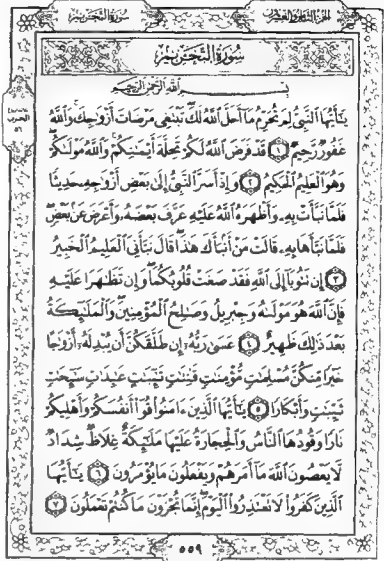 سُورَةُ التَّحْرِيمِ
الجزء الثامن والعشرون
سُورَةُ التَّحْرِيمِ
بِسْمِ اللَّهِ الرَّحْمَٰنِ الرَّحِيمِ
يَٰٓأَيُّهَا ٱلنَّبِيُّ لِمَ تُحَرِّمُ مَآ أَحَلَّ ٱللَّهُ لَكَۖ تَبْتَغِي مَرْضَاتَ أَزْوَٰجِكَۚ وَٱللَّهُ
غَفُورٞ رَّحِيمٞ ١ قَدْ فَرَضَ ٱللَّهُ لَكُمْ تَحِلَّةَ أَيْمَٰنِكُمْۚ وَٱللَّهُ مَوْلَىٰكُمْۖ
وَهُوَ ٱلْعَلِيمُ ٱلْحَكِيمُ ٢ وَإِذْ أَسَرَّ ٱلنَّبِيُّ إِلَىٰ بَعْضِ أَزْوَٰجِهِۦ حَدِيثٗا
فَلَمَّا نَبَّأَتْ بِهِۦ وَأَظْهَرَهُ ٱللَّهُ عَلَيْهِ عَرَّفَ بَعْضَهُۥ وَأَعْرَضَ عَنۢ بَعْضٖۖ
فَلَمَّا نَبَّأَهَا بِهِۦ قَالَتْ مَنْ أَنۢبَأَكَ هَٰذَاۖ قَالَ نَبَّأَنِيَ ٱلْعَلِيمُ ٱلْخَبِيرُ
٣ إِن تَتُوبَآ إِلَى ٱللَّهِ فَقَدْ صَغَتْ قُلُوبُكُمَاۖ وَإِن تَظَٰهَرَا عَلَيْهِ
فَإِنَّ ٱللَّهَ هُوَ مَوْلَىٰهُ وَجِبْرِيلُ وَصَٰلِحُ ٱلْمُؤْمِنِينَۖ وَٱلْمَلَٰٓئِكَةُ
بَعْدَ ذَٰلِكَ ظَهِيرٌ ٤ عَسَىٰ رَبُّهُۥٓ إِن طَلَّقَكُنَّ أَن يُبْدِلَهُۥٓ أَزْوَٰجًا
خَيْرٗا مِّنكُنَّ مُسْلِمَٰتٖ مُّؤْمِنَٰتٖ قَٰنِتَٰتٖ تَٰٓئِبَٰتٍ عَٰبِدَٰتٖ سَٰٓئِحَٰتٖ
ثَيِّبَٰتٖ وَأَبْكَارٗا ٥ يَٰٓأَيُّهَا ٱلَّذِينَ ءَامَنُوا۟ قُوٓا۟ أَنفُسَكُمْ وَأَهْلِيكُمْ
نَارٗا وَقُودُهَا ٱلنَّاسُ وَٱلْحِجَارَةُ عَلَيْهَا مَلَٰٓئِكَةٌ غِلَاظٞ شِدَادٞ
لَّا يَعْصُونَ ٱللَّهَ مَآ أَمَرَهُمْ وَيَفْعَلُونَ مَا يُؤْمَرُونَ ٦ يَٰٓأَيُّهَا
ٱلَّذِينَ كَفَرُوا۟ لَا تَعْتَذِرُوا۟ ٱلْيَوْمَۖ إِنَّمَا تُجْزَوْنَ مَا كُنتُمْ تَعْمَلُونَ ٧
٥٥٩